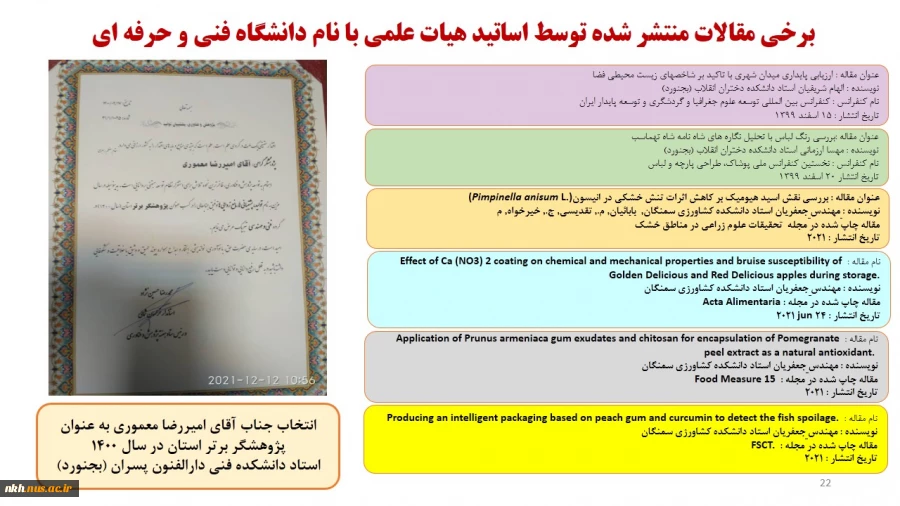 برخی مقالات منتشر شده توسط اساتید هیات علمی با نام دانشگاه فنی و حرفه ای
عنوان مقاله : ارزیابی پایداری میدان شهری با تاکید بر شاخصهای زیست محیطی فضا
نویسنده : الهام شریفیان استاد دانشکده دختران انقلاب (بجنورد)
نام کنفرانس : کنفرانس بین المللی توسعه علوم جغرافیا و گردشگری و توسعه پایدار ایران
تاریخ انتشار : ۱۵ اسفند ۱۳۹۹
عنوان مقاله :بررسی رنگ لباس با تحلیل نگاره های شاه نامه شاه تهماسب
نویسنده : مهسا آرزمانی استاد دانشکده دختران انقلاب (بجنورد)
نام کنفرانس : نخستین کنفرانس ملی پوشاک، طراحی پارچه و لباس
تاریخ انتشار : ۲۰ اسفند ۱۳۹۹
عنوان مقاله : بررسی نقش اسید هیومیک بر کاهش اثرات تنش خشکی در انیسون(Pimpinella anisum L.)
نویسنده : مهندس جعفریان استاد دانشکده کشاورزی سمنگان, بابائیان, م., تقدیسی, ج., خیرخواه, م
مقاله چاپ شده در مجله تحقیقات علوم زراعی در مناطق خشک
تاریخ انتشار : ۲۰۲۱
نام مقاله : Effect of Ca (NO3) 2 coating on chemical and mechanical properties and bruise susceptibility of
Golden Delicious and Red Delicious apples during storage.
نویسنده : مهندس جعفریان استاد دانشکده کشاورزی سمنگان
مقاله چاپ شده در مجله : Acta Alimentaria
تاریخ انتشار : ۲۴ jun ۲۰۲۱
نام مقاله : Application of Prunus armeniaca gum exudates and chitosan for encapsulation of Pomegranate
peel extract as a natural antioxidant.
نویسنده : مهندس جعفریان استاد دانشکده کشاورزی سمنگان
مقاله چاپ شده در مجله : Food Measure 15
تاریخ انتشار : ۲۰۲۱
نام مقاله : Producing an intelligent packaging based on peach gum and curcumin to detect the fish spoilage.
نویسنده : مهندس جعفریان استاد دانشکده کشاورزی سمنگان
مقاله چاپ شده در مجله : FSCT.
تاریخ انتشار : ۲۰۲۱
آقای امیررضا معموری
2021-12-12 10:56
انتخاب جناب آقای امیررضا معموری به عنوان
پژوهشگر برتر استان در سال ۱۴۰۰
استاد دانشکده فنی دارالفنون پسران (بجنورد)
22
nkh.nus.ac.ir